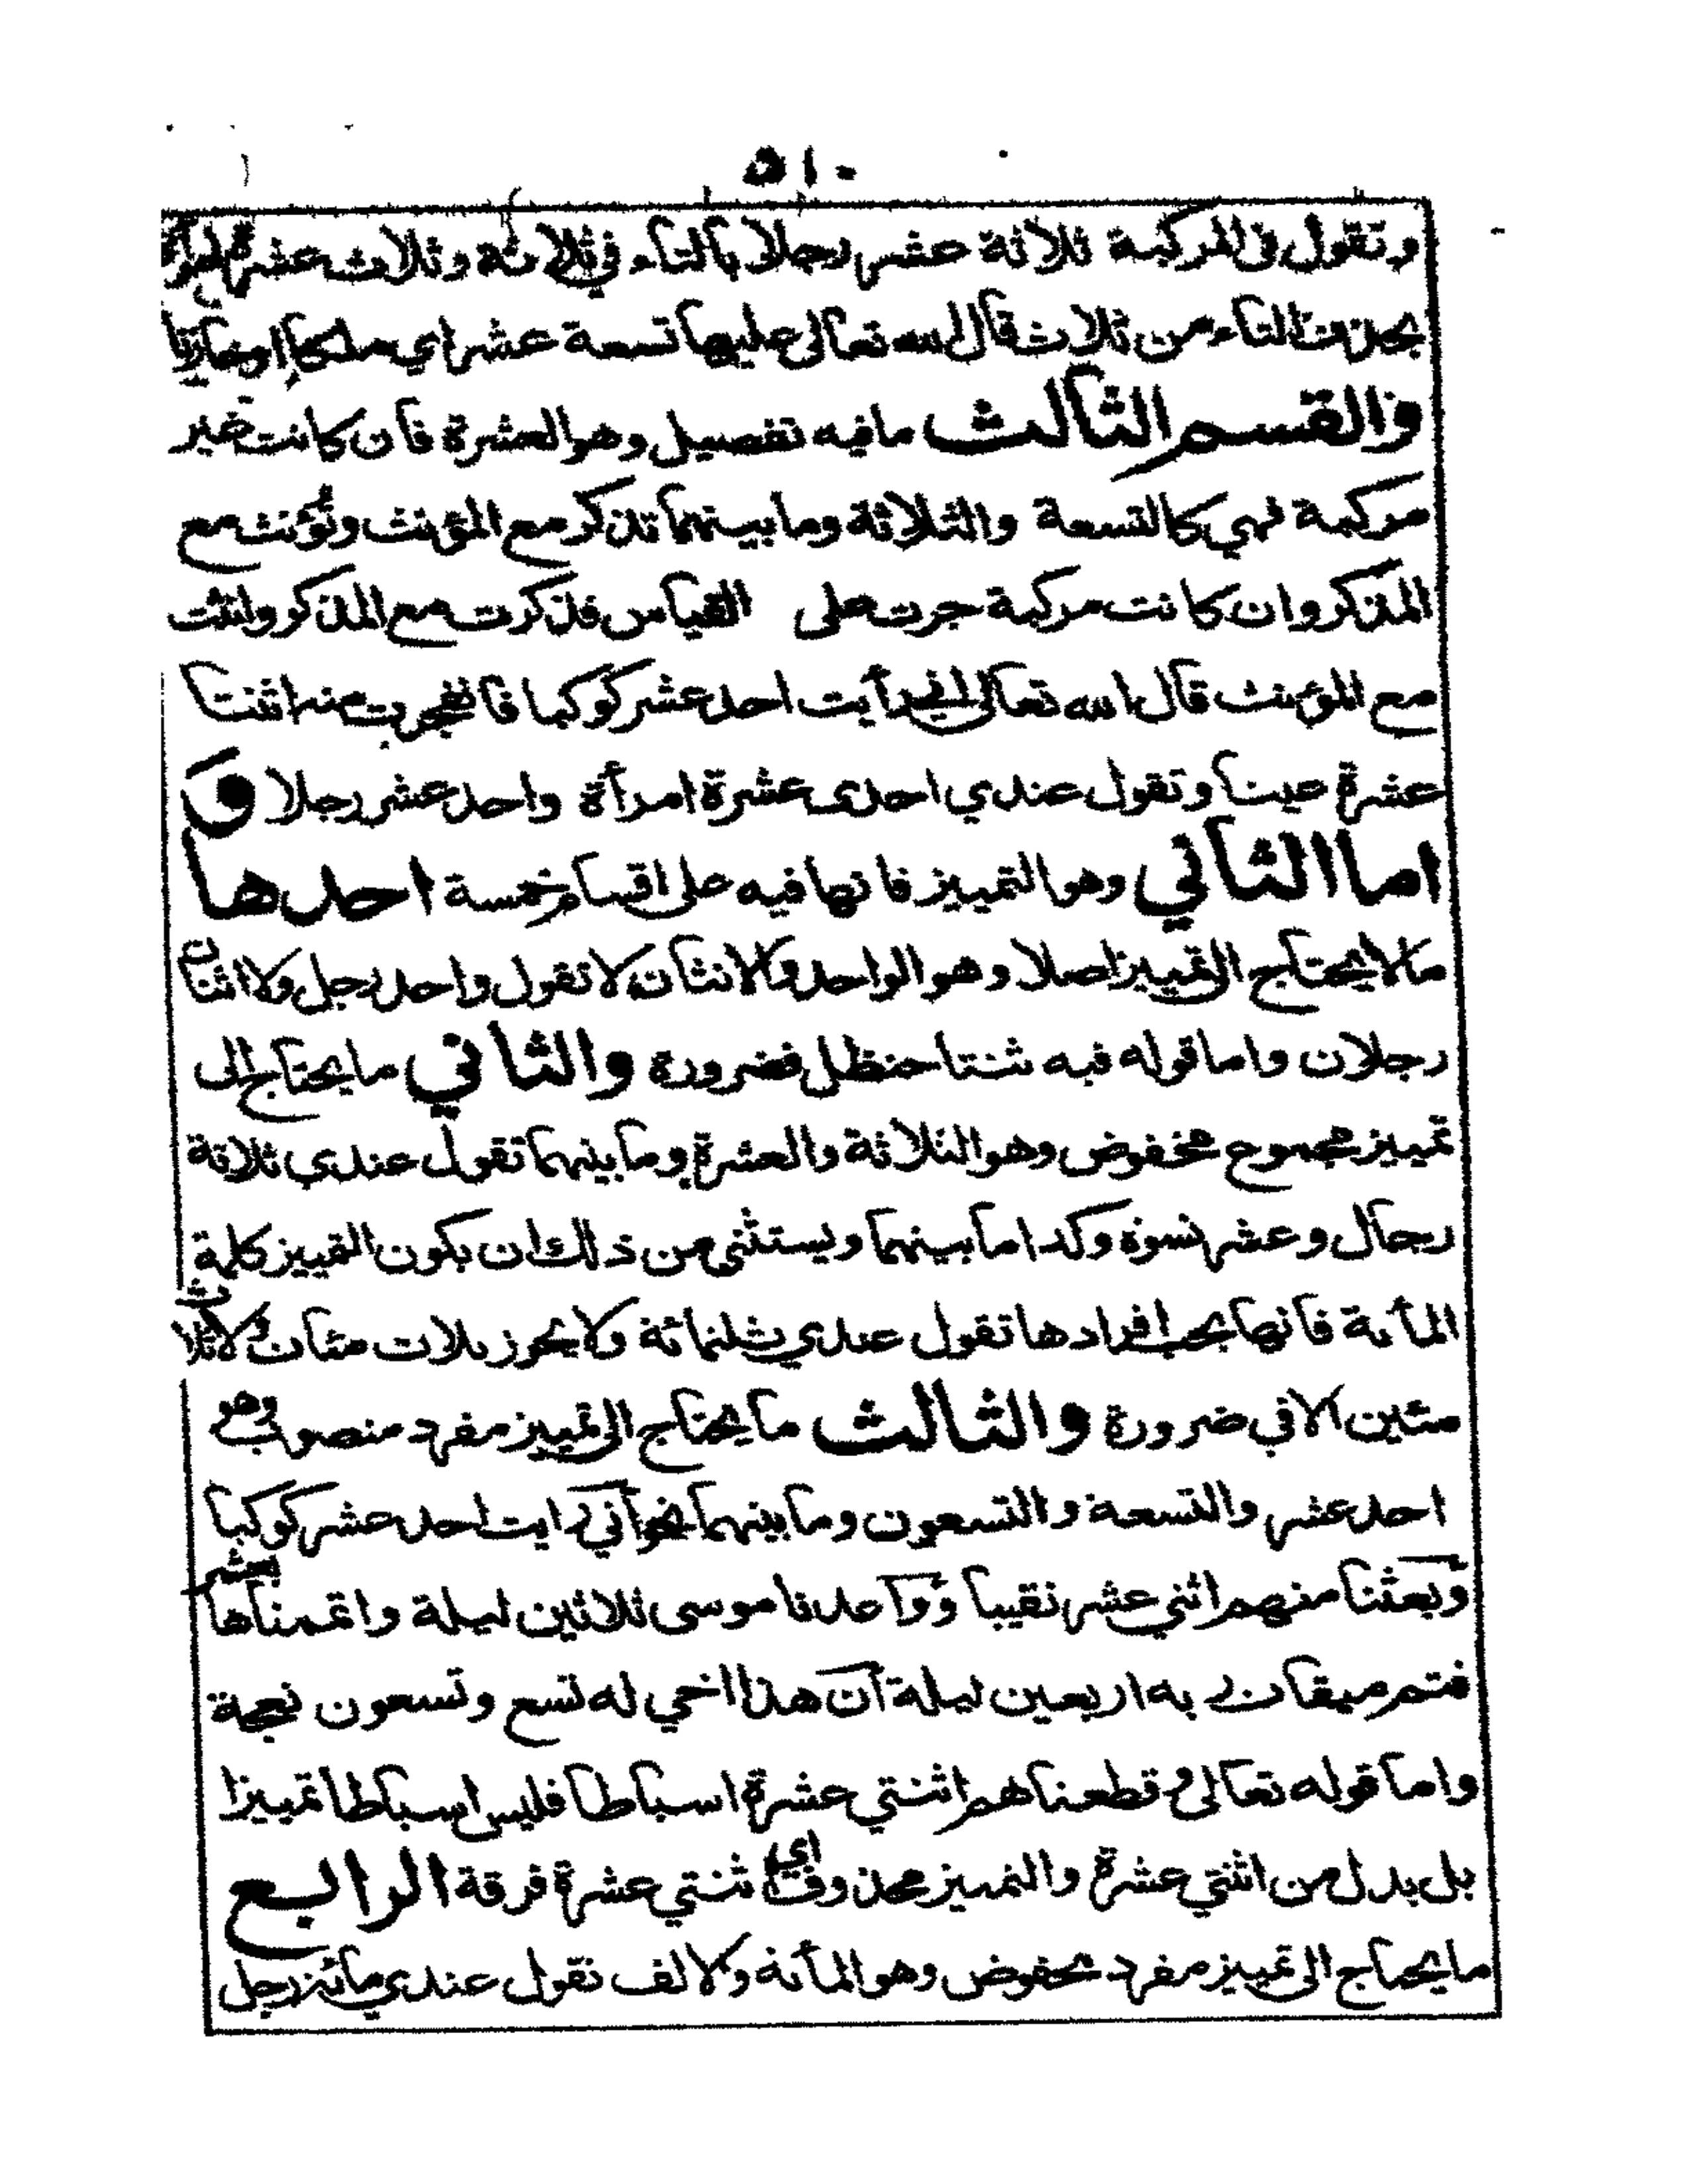 ٥١٠
وتقول في المركبة ثلاثة عشر رجلا بالتاء في ثلاثة وثلاث عشرة امرأة
بحذف التاء من ثلاث قال الله تعالى عليها تسعة عشر اي ملكا او خازنا
والقسم الثالث ما فيه تفصيل وهو العشرة فان كانت غير
مركبة فهي كالتسعة والثلاثة وما بينهما تذكر مع المؤنث وتؤنث مع
المذكر وان كانت مركبة جرت على القياس فذكرت مع المذكر وانثت
مع المؤنث قال الله تعالى اني رأيت احد عشر كوكبا فانفجرت منه اثنتا
عشرة عينا وتقول عندي احدى عشرة امرأة واحد عشر رجلا و
اما الثاني وهو التمييز فانها فيه على اقسام خمسة احدها
ما لا يحتاج الى تمييز اصلا وهو الواحد والاثنان لا تقول واحد رجل ولا اثنان
رجلان واما قوله فيه ثنتا حنظل فضرورة والثاني ما يحتاج الى
تمييز مجموع مخفوض وهو الثلاثة والعشرة وما بينهما تقول عندي ثلاثة
رجال وعشر نسوة وكذا ما بينهما ويستثنى من ذلك ان يكون التمييز كلمة
المأية فانها يجب افرادها تقول عندي ثلثمائة ولا يجوز ثلاث مئات ولا ثلاث
مئين الا في ضرورة والثالث ما يحتاج الى تمييز مفرد منصوب وهو
احد عشر والتسعة والتسعون وما بينهما نحو اني رايت احد عشر كوكبا
وبعثنا منهم اثني عشر نقيبا وواعدنا موسى ثلاثين ليلة واتممناها بعشر
فتم ميقات ربه اربعين ليلة ان هذا اخي له تسع وتسعون نعجة
واما قوله تعالى وقطعناهم اثنتي عشرة اسباطا فليس اسباطا تمييزا
بل بدل من اثنتي عشرة والتمييز محذوف اي اثنتي عشرة فرقة الرابع
ما يحتاج الى تمييز مفرد مخفوض وهو المأئة والالف تقول عندي مائة رجل